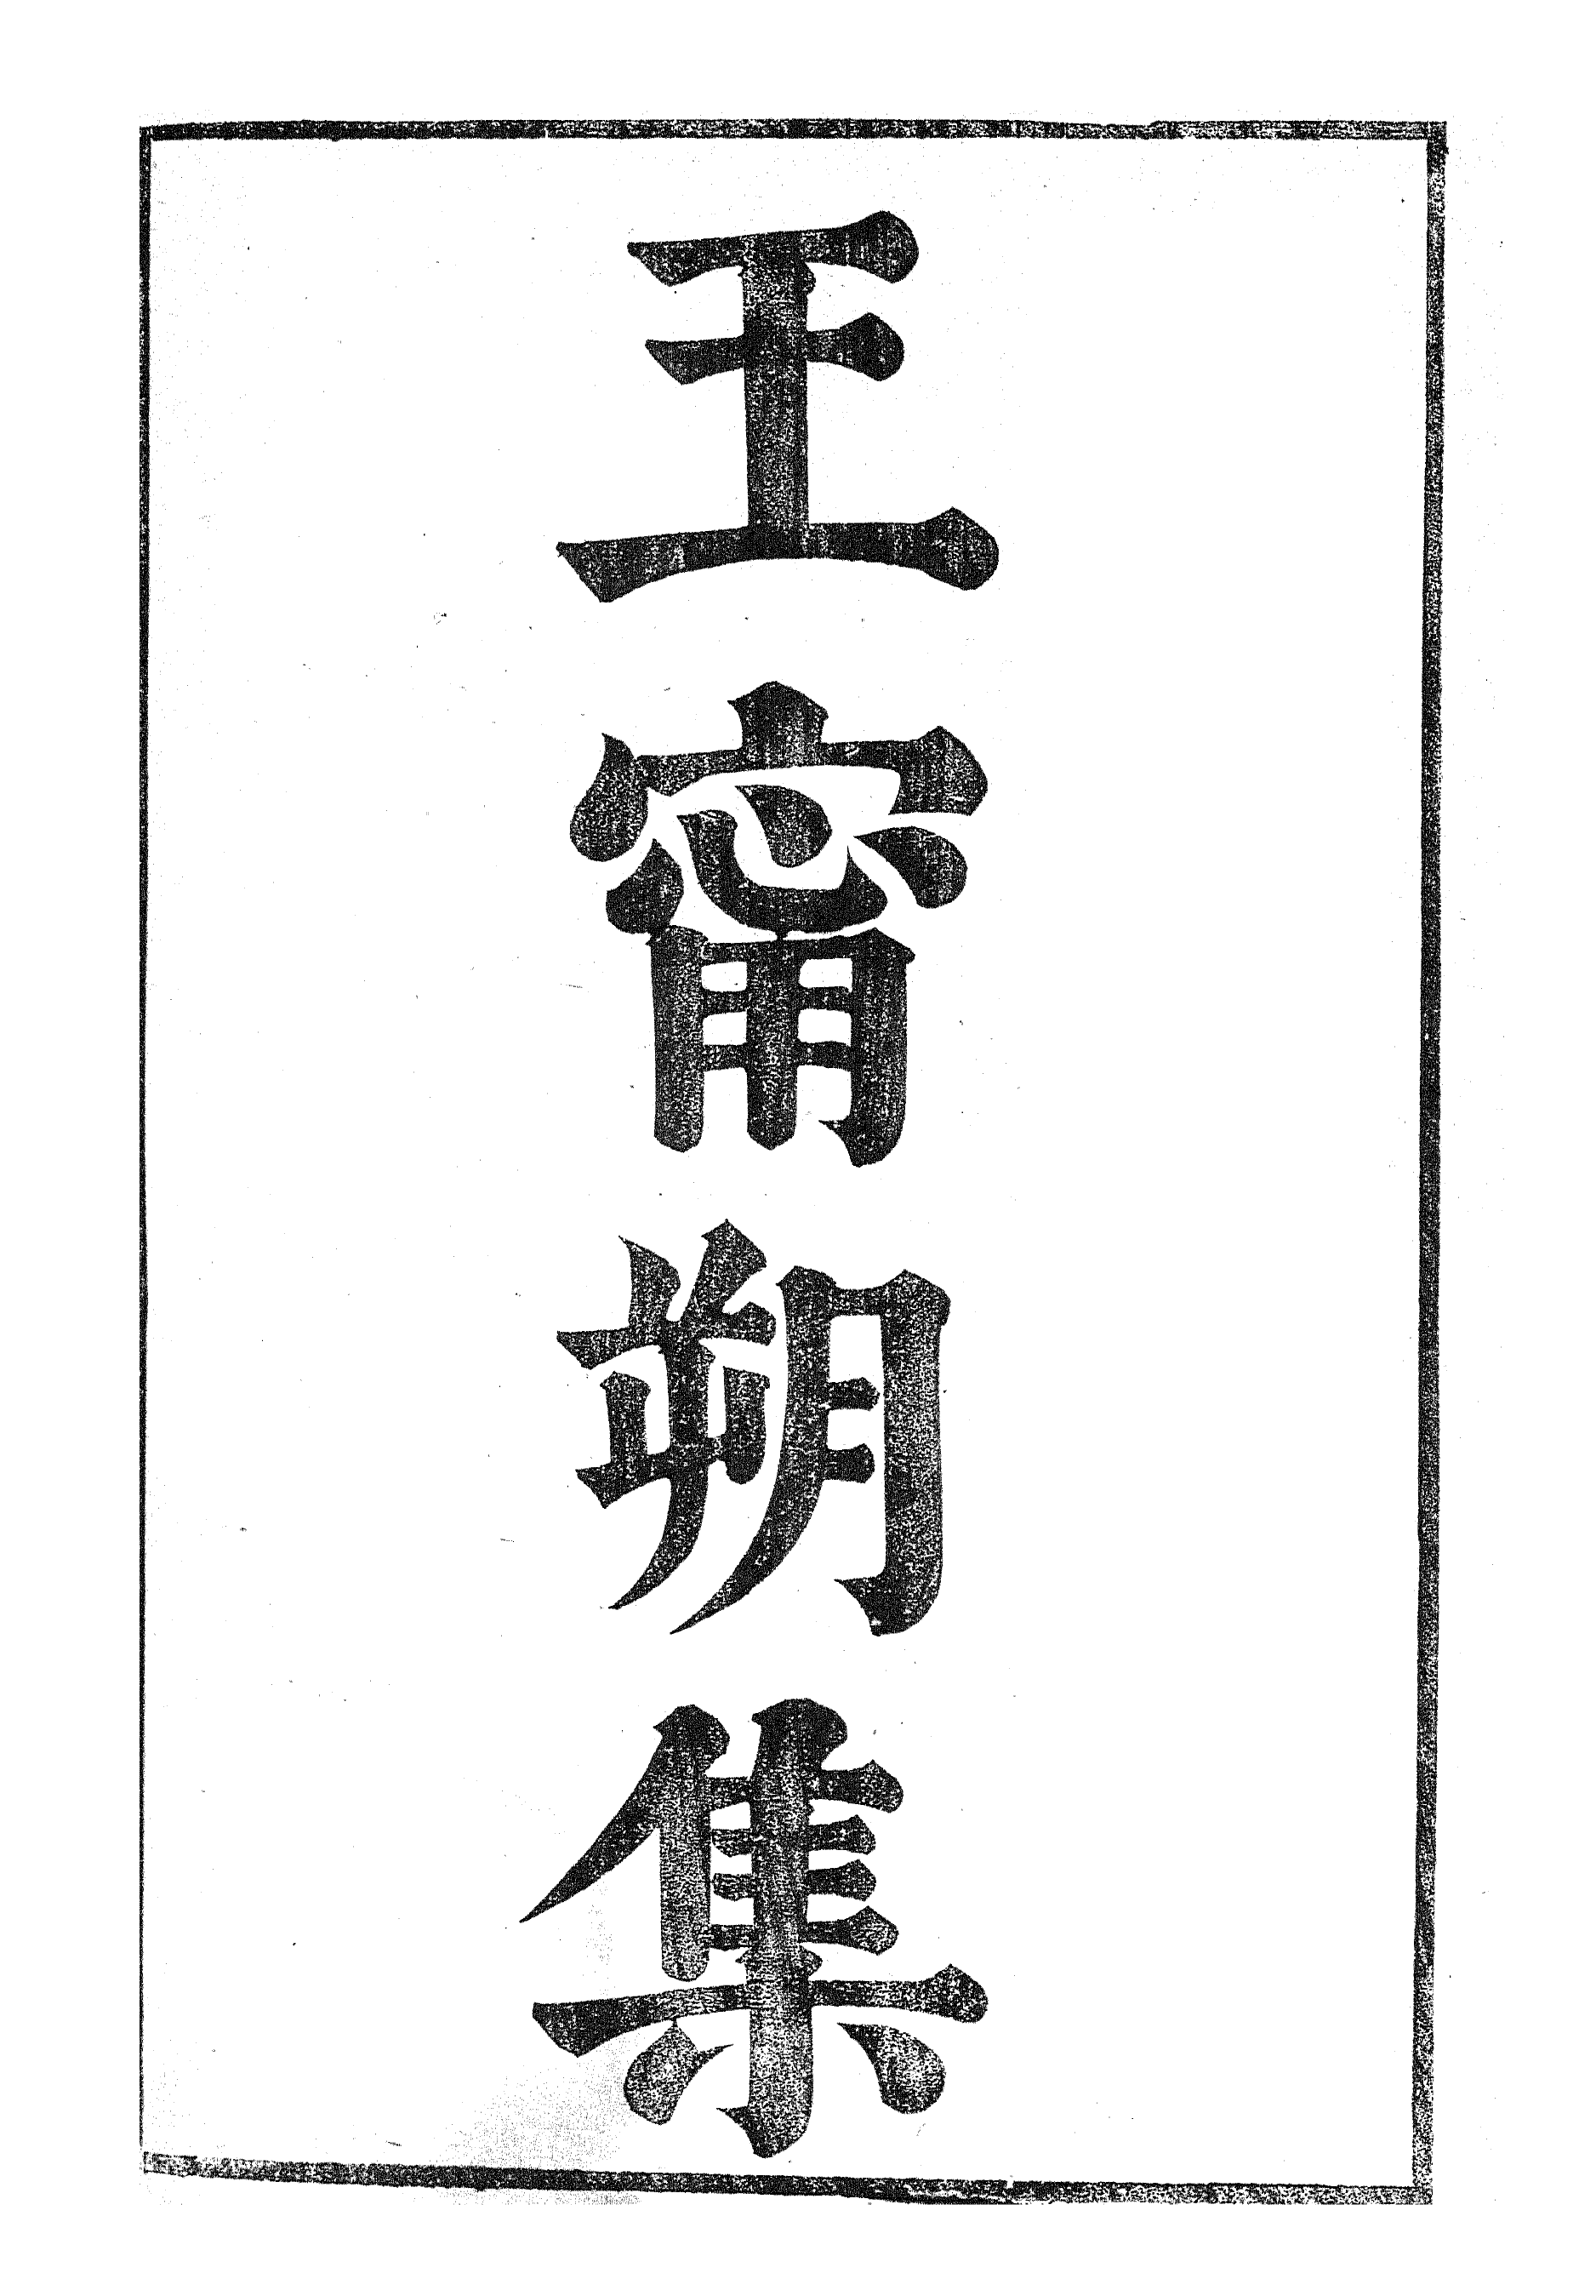 王甯朔集